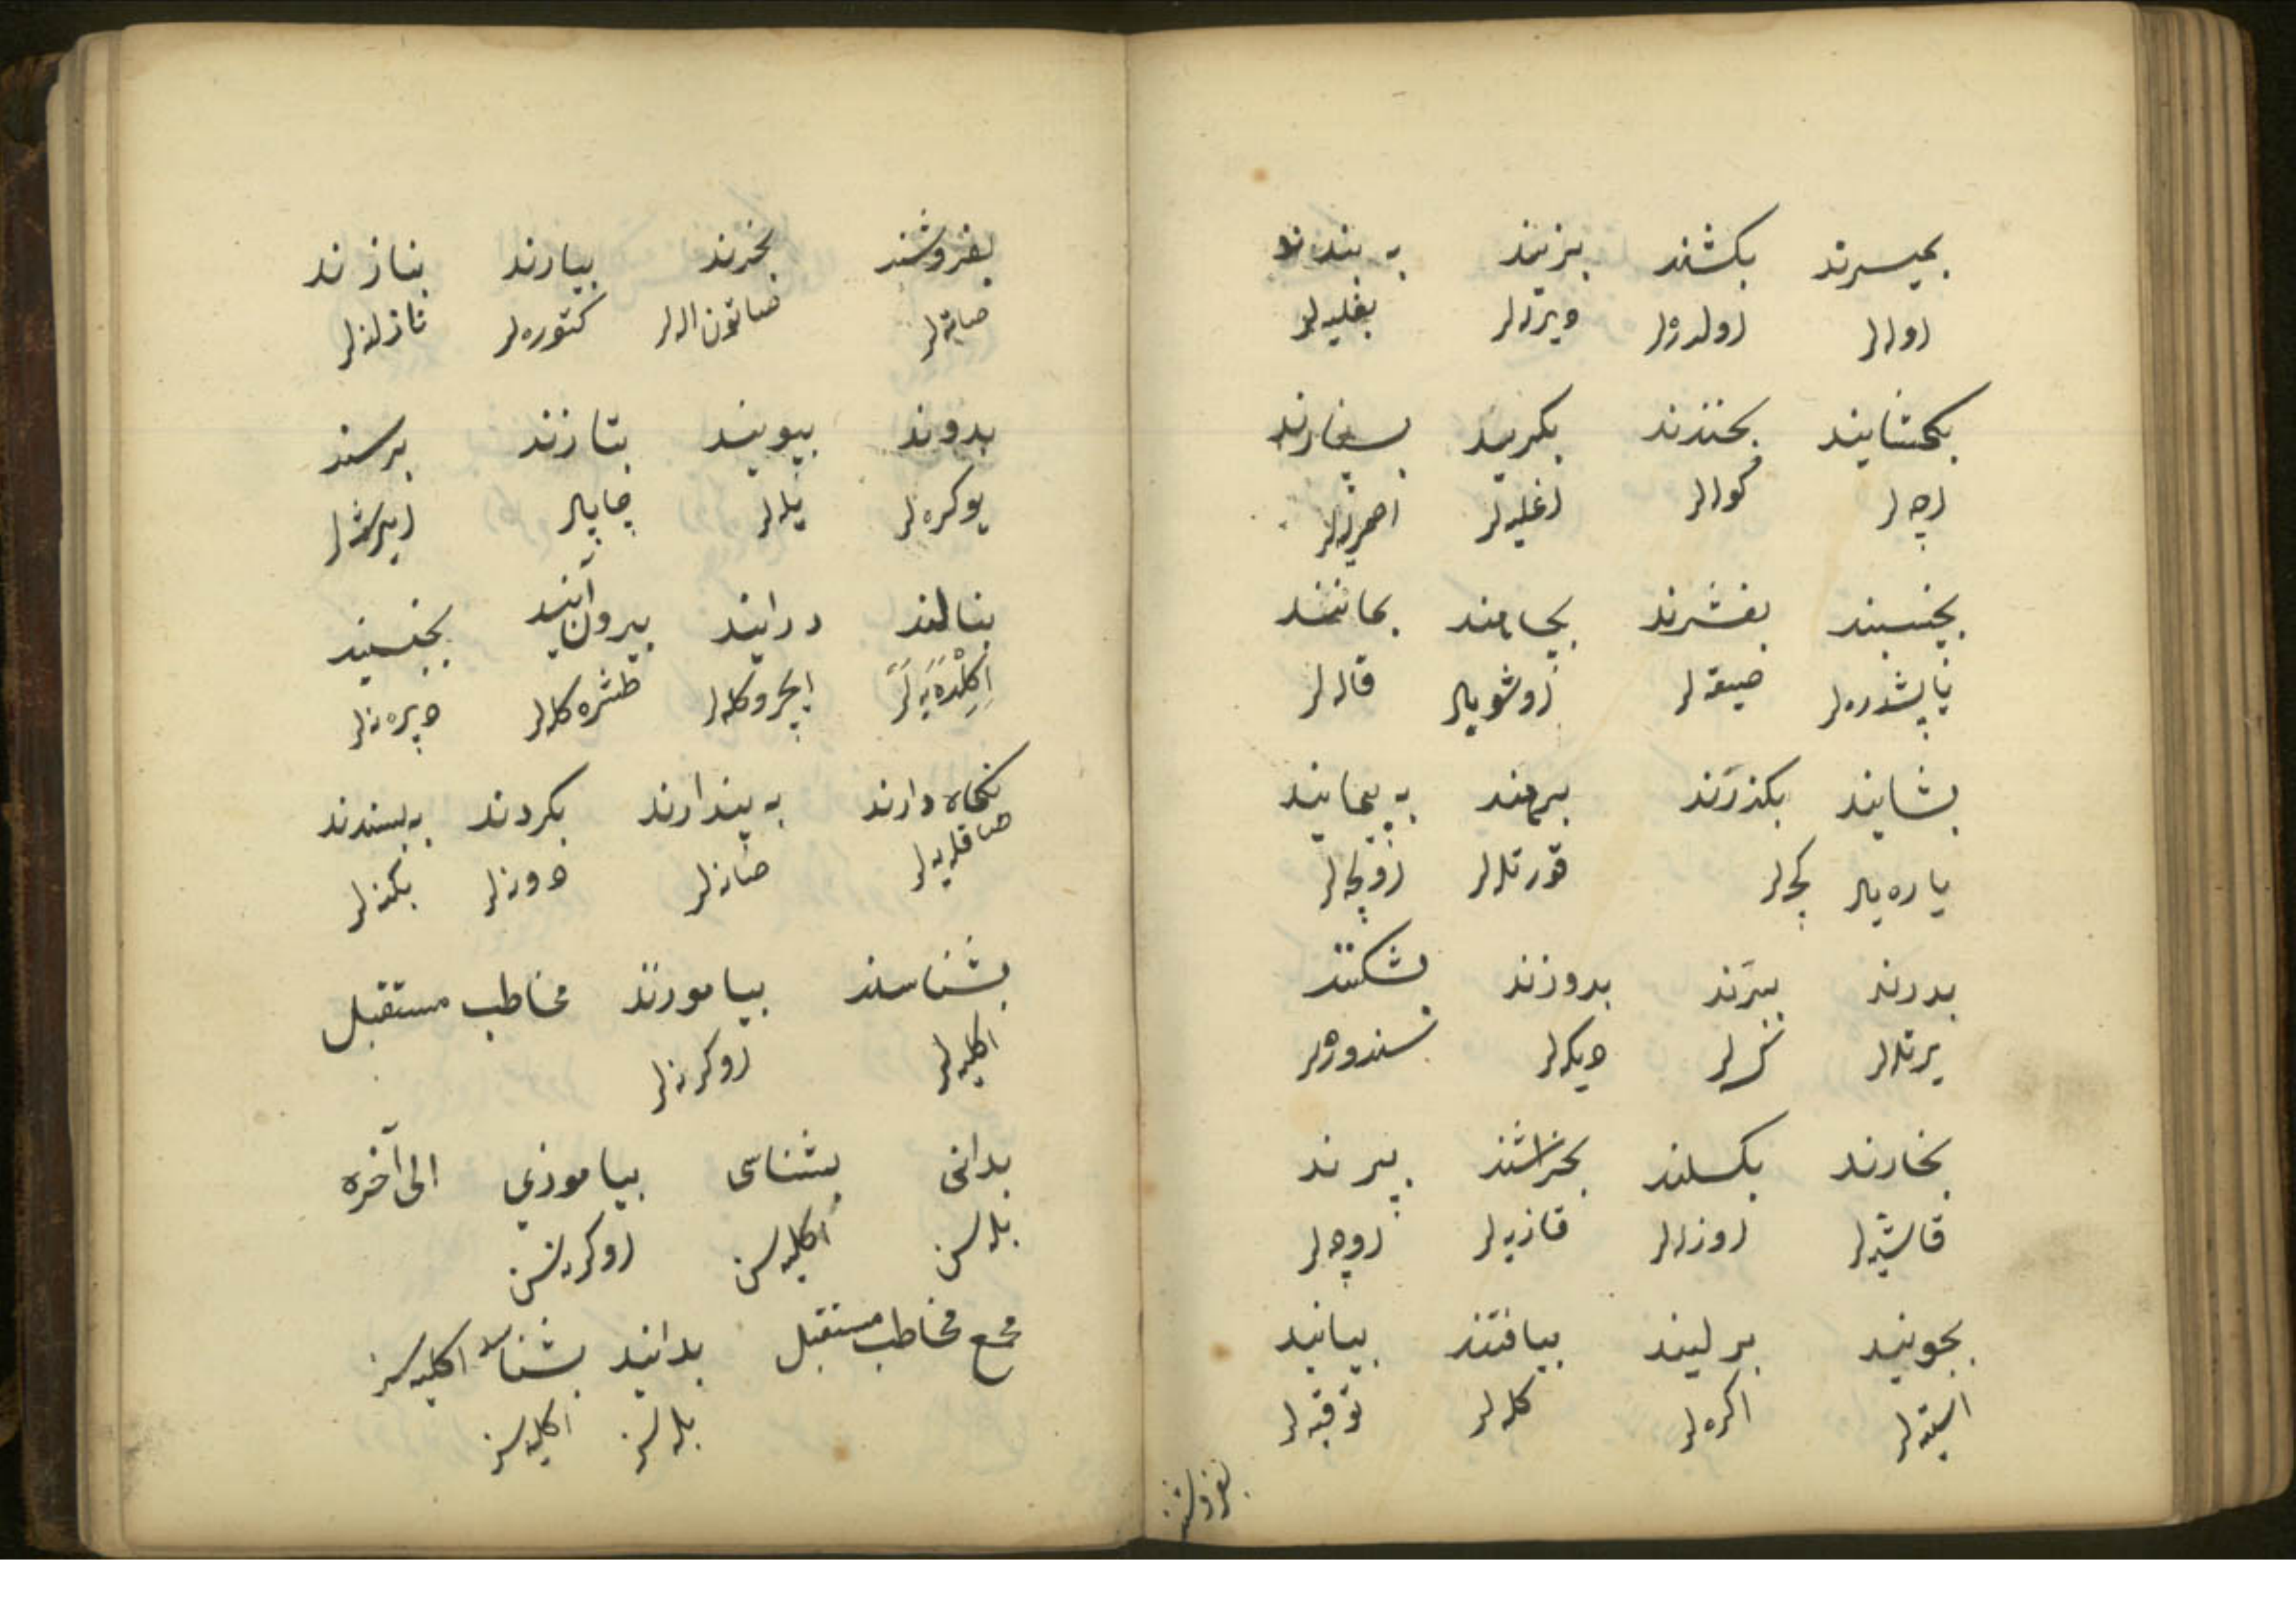 بمیرند بکشند بزنند به بندند
اوله لر اولدره لر ویره لر بغلیه لر
بکشایند بخندند بکریند بسپارند
اچه لر کوله لر اغلیه لر اصمرلر
بخسبند بفشرند بمانند
صیقه لر قاله لر
بشایند بکذرند برهند به پیمایند
یاره یه لر کچه لر قورتله لر اولچه لر
بدرند ببرند بدوزند بشکنند
یرتله لر کسه لر دیکه لر سندوره لر
بخارند بکسلند بخراشند بپرند
قاشیه لر اوزه لر قازیه لر اوچه لر
بجویند بر لیند بیافتند بیایند
استیه لر اکره لر کله لر
بفروشند
بفروشند بخرند بیارند بنازند
صاته لر صاتون اله لر کتوره لر نازلنه لر
بدوند بپویند بتازند برسند
یوکره لر یله لر چاپه لر ایرشه لر
بنالند در ایند بیرون آیند بخسبند
اکلده یه لر ایچرو کله لر طشره کله لر
نکاه دارند به پندارند بکردند به پسندند
صاقلیه لر صانه لر دونه لر بکنه لر
بشناسند بیاموزند مخاطب مستقبل
اکلیه لر اوکرنه لر
بدانی بشناسی بیاموزی الی آخره
بله سن اکلیه سن اوکرنه سن
جمع مخاطب مستقبل بدانید بشناسید اکلیه سز
بله سز اکلیه سز